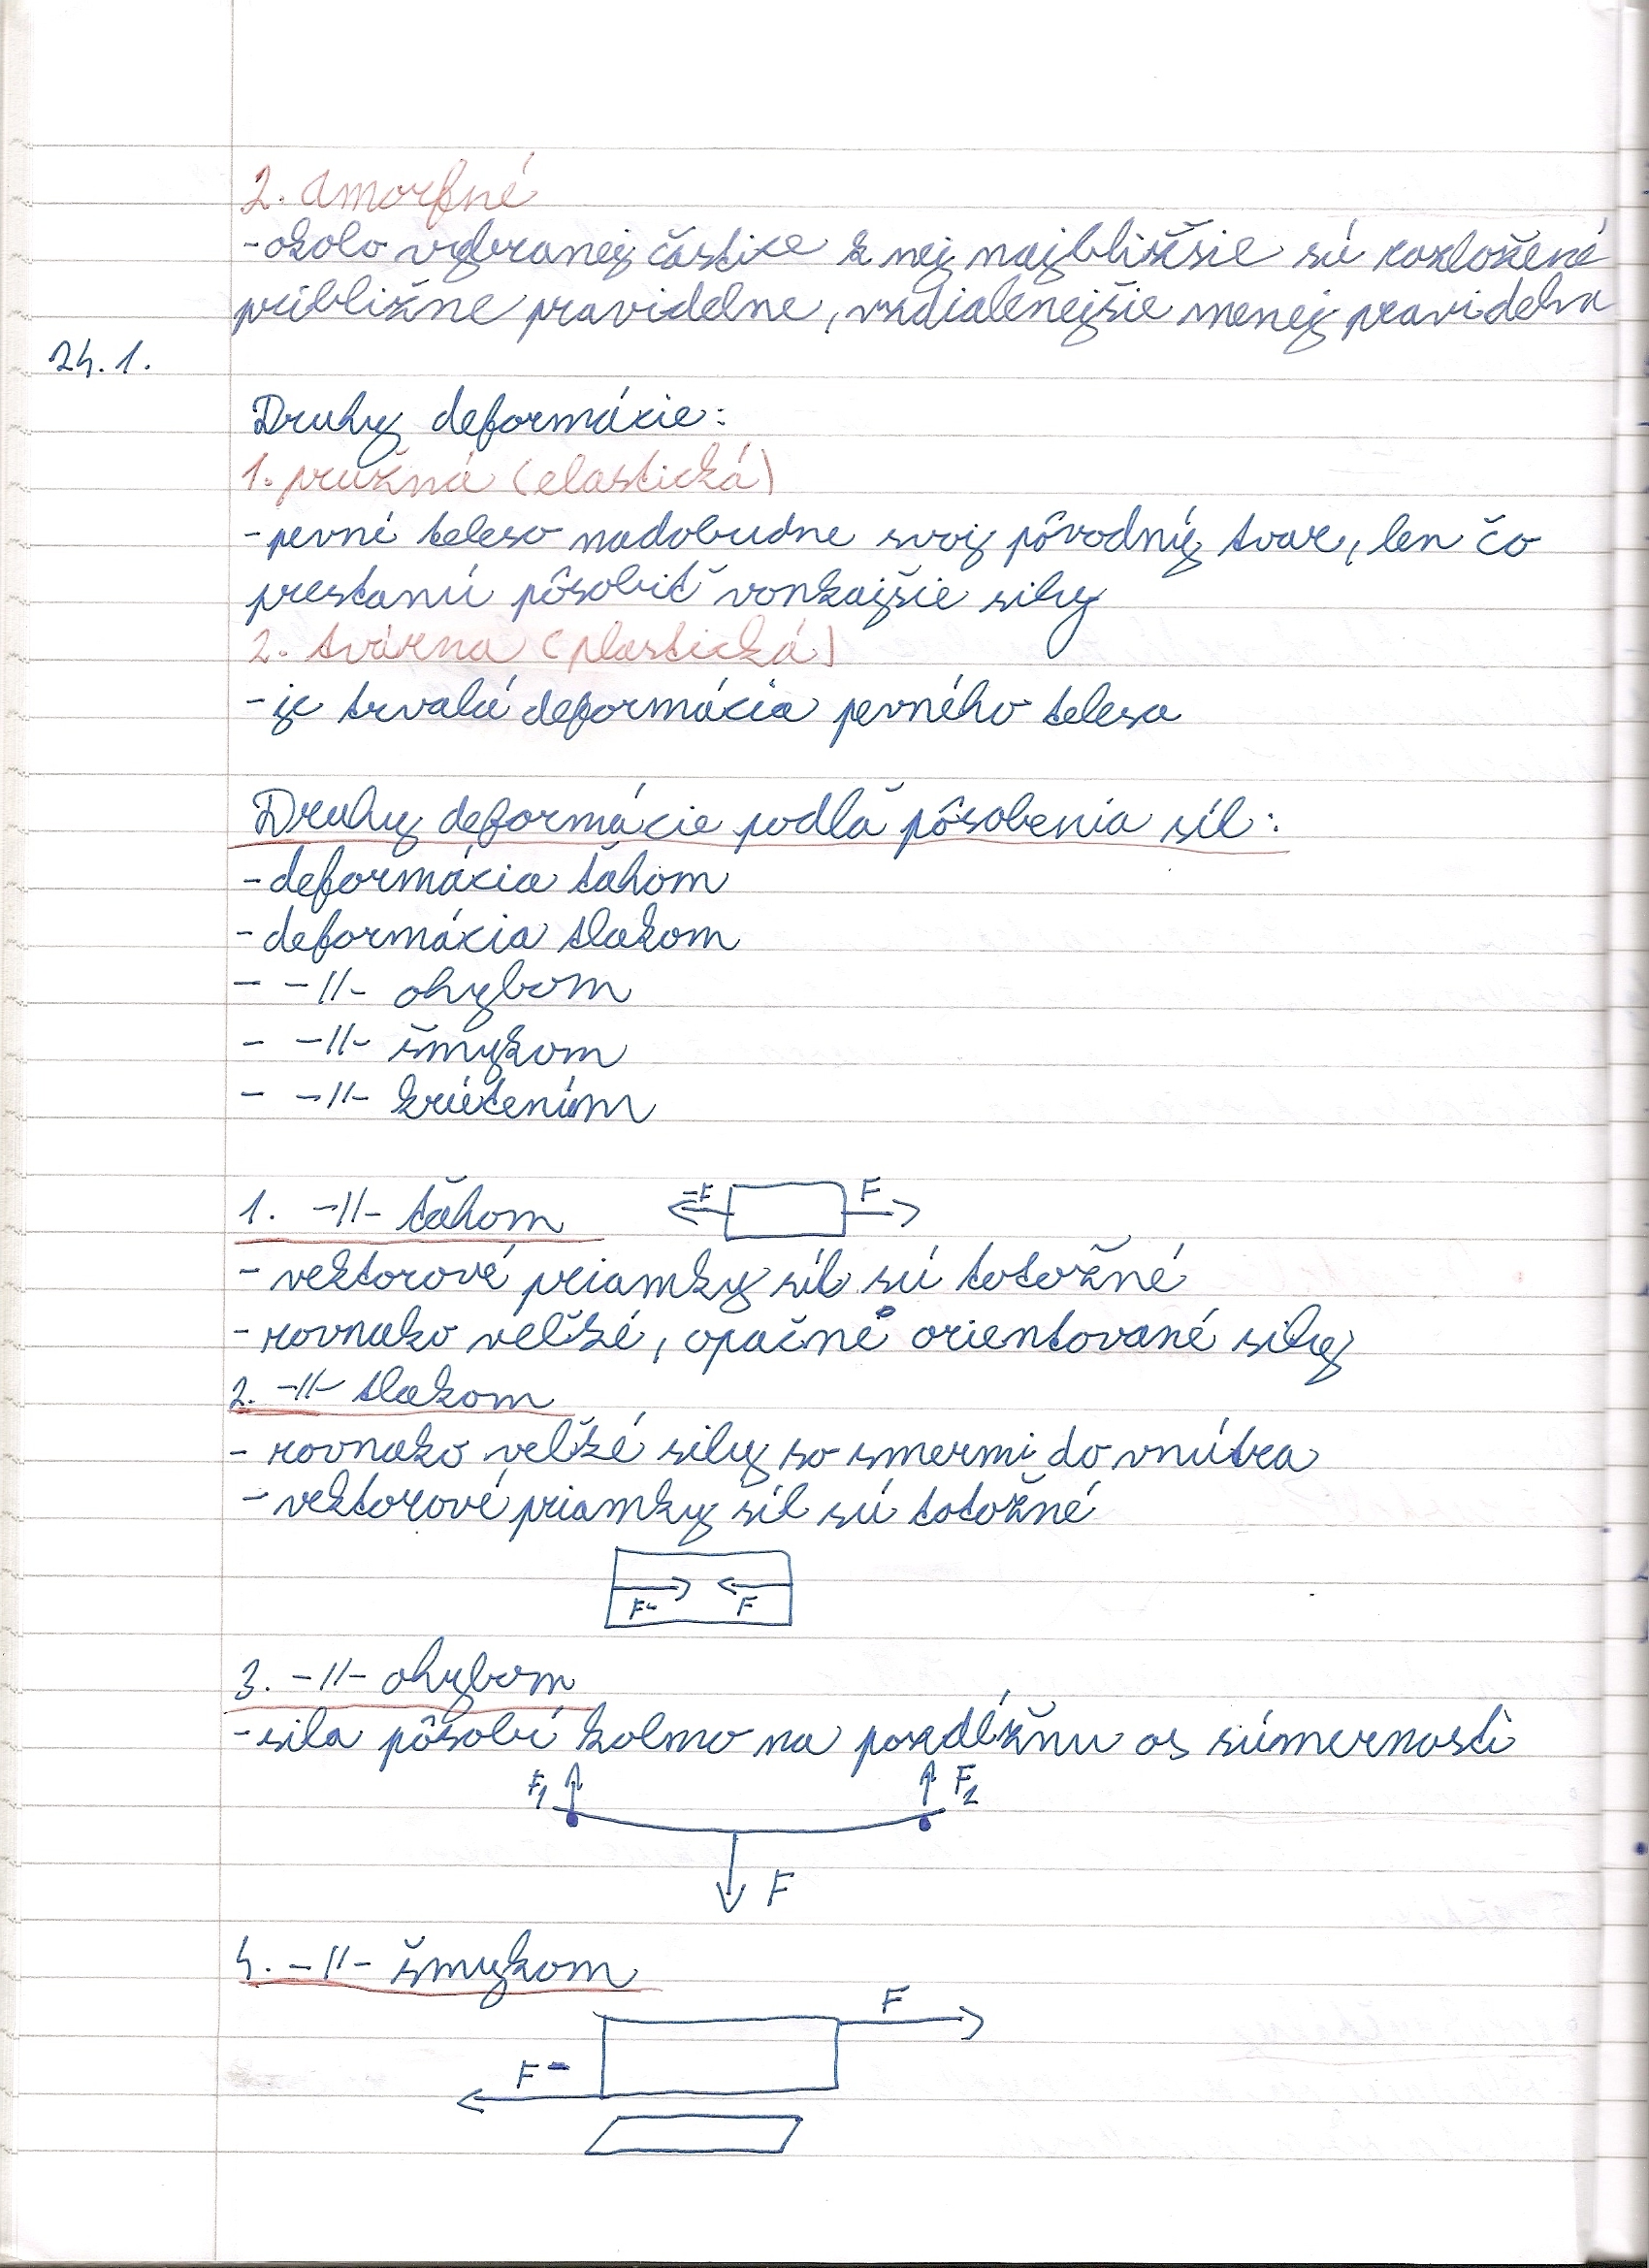 2. Amorfné
-okolo vybranej častice k nej najbližšie sú rozložené
približne pravidelne, vzdialenejšie menej pravidelne
24.1.
Druhy deformácie:
1. pružná (elastická)
-pevné teleso nadobudne svoj pôvodný tvar, len čo
prestanú pôsobiť vonkajšie sily
2. tvárna (plastická)
-je trvalá deformácia pevného telesa
Druhy deformácie podľa pôsobenia síl:
-deformácia ťahom
-deformácia tlakom
- -//- ohybom
- -//- šmykom
- -//- krútením
1. -//- ťahom
-F F
- vektorové priamky síl sú totožné
- rovnako veľké, opačne orientované sily
2. -//- tlakom
- rovnako veľké sily so smermi do vnútra
- vektorové priamky síl sú totožné
F- F
3. -//- ohybom
-sila pôsobí kolmo na pozdĺžnu os súmernosti
F1 F2
F
4. -//- šmykom
F
F-